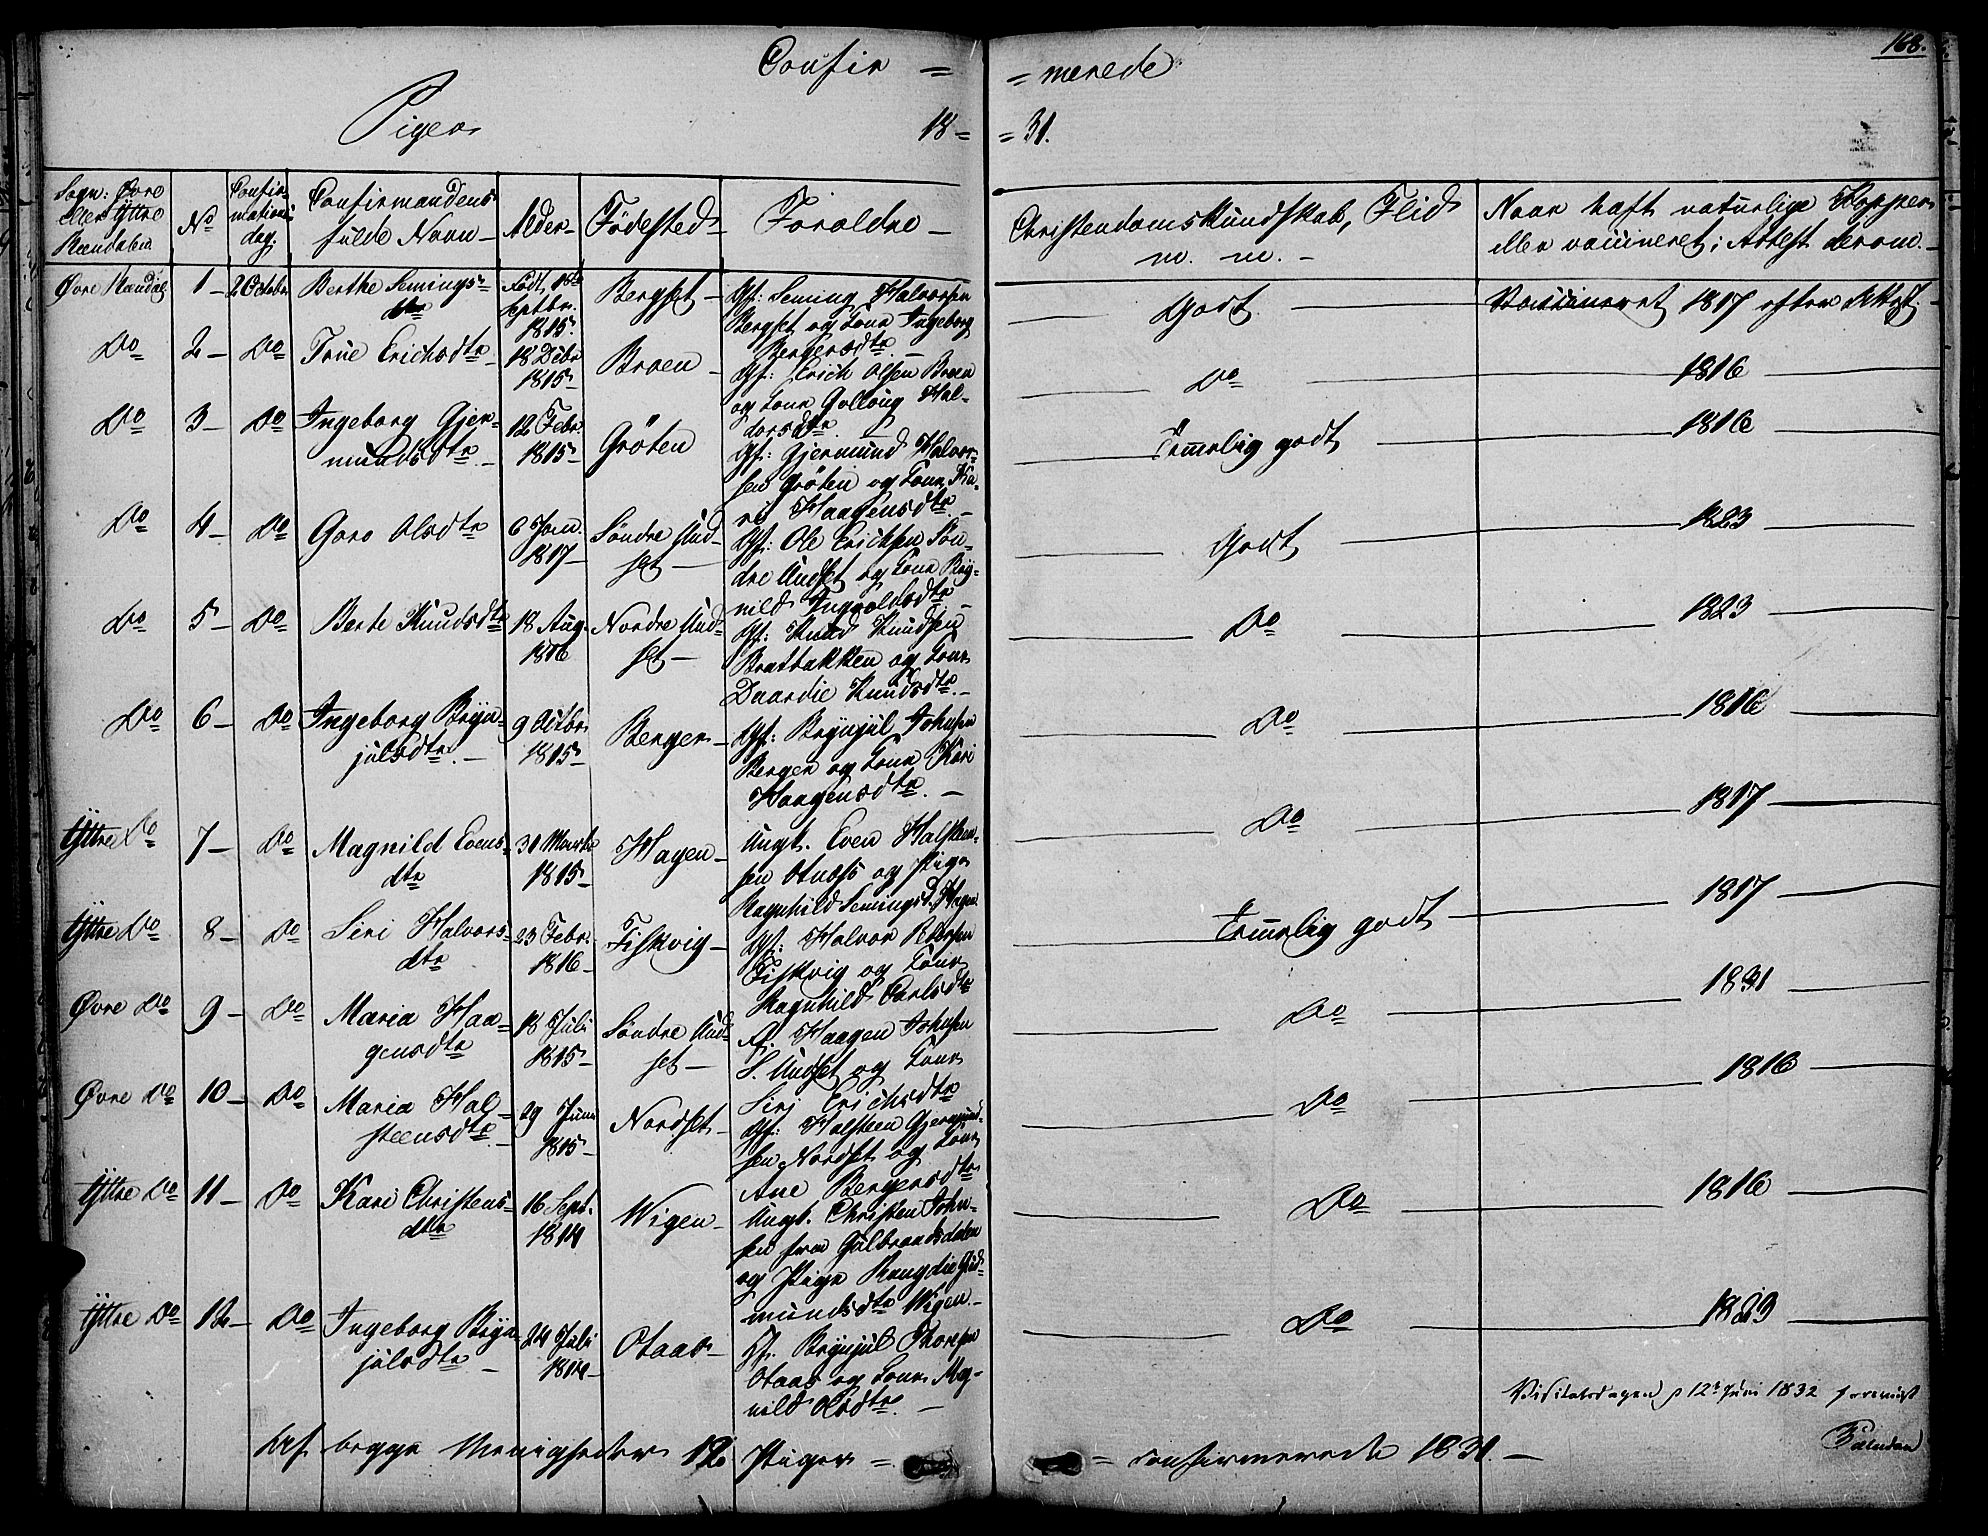 168.
Confir = = merede
Piger 18 = = 31.
Sogn: Øvre eller Yttre Rendalen | No | Confirmations dag. | Confirmandens fulde Navn | Alder | Fødested | Forældre | Christendoms Kundskab, Flid m. m. | Naar haft naturlige Kopper eller vaccineret; Attest derom.
Øvre Rendal | 1 | 2 October | Berthe Semingsdtr | Født 18de Septbr. 1815 | Bergset | Gf: Seming Halvorsen Bergset og Kone Ingeborg Bergersdtr | Godt | Vaccineret 1817 efter Attest
Do | 2 | Do | Erichsdtr | 18 Decbr 1815 | Broen | Gf: Erich Olsen Broen og Kone Haldorsdtr | Do | 1816
Do | 3 | Do | Ingeborg Gjermundsdtr | 12 Febr. 1815 | Gröten | Gf: Gjermund Halvorsen Gröten og Kone Kari Haagensdtr | Temmelig godt | 1816
Do | 4 | Do | Goro Olsdtr | 6 Jan. 1817 | Søndre Undset | Gf: Ole Erichsen Søndre Undset og Kone Ragnild Ingvoldsdtr | Godt | 1823
Do | 5 | Do | Berte Knudsdtr | 18 Aug. 1816 | Nordre Undset | Gf: Knud Knudsen Bratbakken og Kone Knudsdtr. | Do | 1823
Do | 6 | Do | Ingeborg Brynjulsdtr. | 9 Octbr 1815 | Berger | Gf: Brynjul Johnsen Berger og Kone Kari Haagensdtr. | Do | 1816
Yttre Do | 7 | Do | Magnild Evensdtr | 31 Marts 1815 | Hagen | Ungk. Even Halsteensen og Pige Ragnhild Semingsd. Hagen | Do | 1817
Yttre Do | 8 | Do | Siri Halvorsdtr | 23 Febr. 1816 | Fiskvig | Gf: Halvor Pedersen Fiskvig og Kone Ragnhild Carlsdtr | Temmelig godt | 1817
Øvre Do | 9 | Do | Maria Haagensdtr | 18 Juli 1815 | Søndre Undset | Haagen Johnsen S. Undset og Kone Siri Erichsdtr | Do | 1831
Øvre Do | 10 | Do | Maria Halsteensdtr. | 29 Juni 1815 | Nordset | Gf: Halsteen Gjermundsen Nordset og Kone Ane Bergersdtr | Do | 1816
Yttre Do | 11 | Do | Kari Christensdtr | 16 Sept. 1814 | Wigen | Ungk. Christen Johnsen fra Gulbrandsdalen og Pige Rangdie Gudmundsdtr Wigen. | Do | 1816
Yttre Do | 12 | Do | Ingeborg Brynjulsdtr | 24 Juli | Otaas | Brynjul Thoresen Otaas og Kone Magnild Olsdtr. | Do | 1823
Visitatsdagen d 12te Juni 1832 foreviist
Af begge Menigheder 12 Piger = = confirmerede 1831.